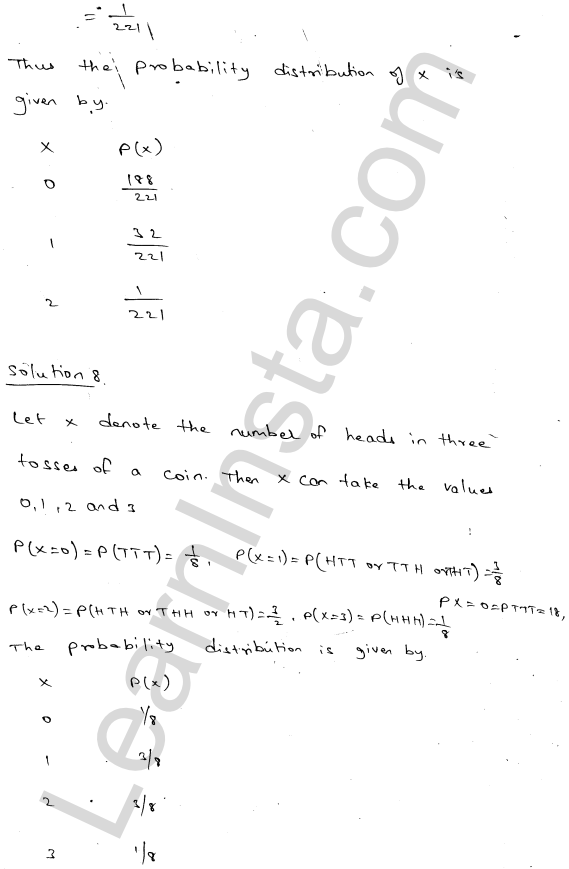 = 1/221
Thus the probability distribution of x is
given by.
X P(x)
0 188/221
1 32/221
2 1/221
Solution 8.
Let x denote the number of heads in three
tosses of a coin. Then x can take the values
0,1,2 and 3
P(x=0)=P(TTT)=1/8, P(x=1)=P(HTT or TTH or THT)=3/8
PX=0=PTTT=18,
P(x=2)=P(HTH or THH or HT)=3/2, P(x=3)=P(HHH)=1/8
The probability distribution is given by.
X P(x)
0 1/8
1 3/8
2 3/8
3 1/8
LearnInsta.com